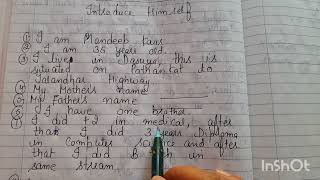 Introduce Himself
① I am Mandeep Kaur
② I am 35 years old.
③ I live in Dasuya, this is
situated on Pathankot to
Jalandhar Highway.
④ My Mother's name
⑤ My Father's name
⑥ I have one brother
⑦ I did +2 in medical, after
that I did 3 years Diploma
in Computer Science and after
that I did B tech in
same stream.
InShOt